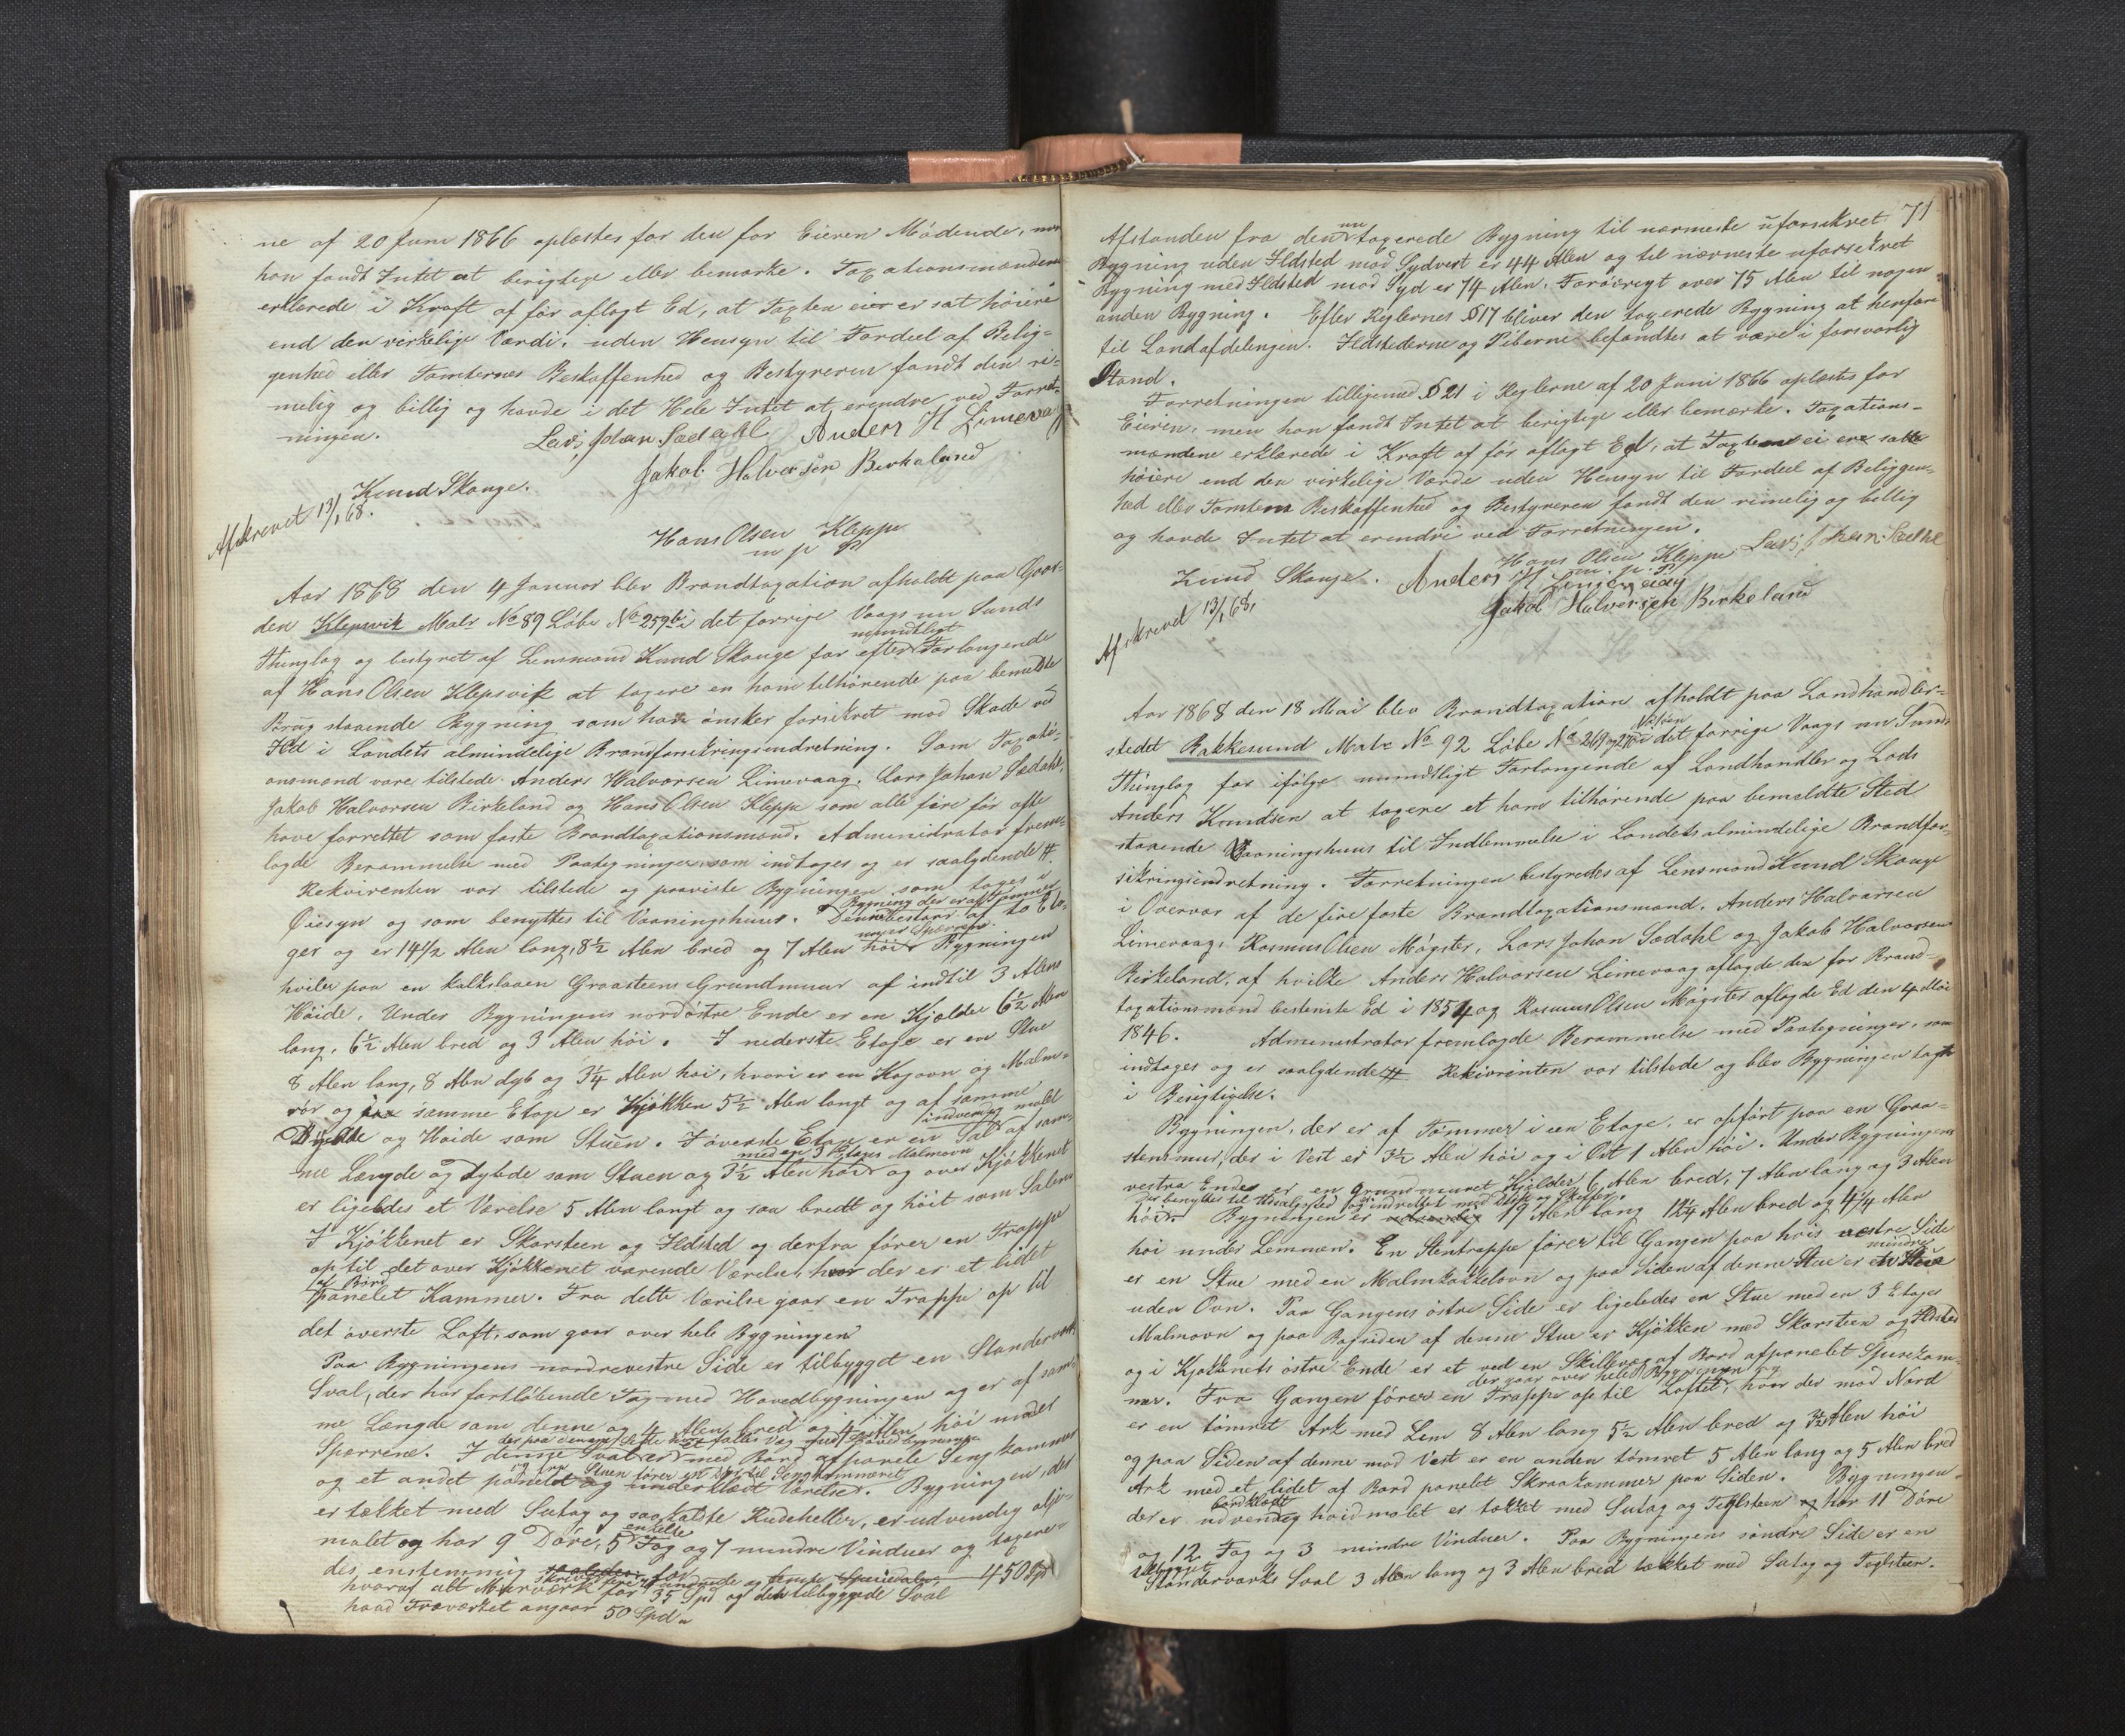 ne af 20 Juni 1866 oplæstes for den for Eieren Mödende, men
han fandt Intet at berigtige eller bemærke. Taxationsmændene
erklærede i Kraft af för aflagt Ed, at Taxten ei er sat höiere
end den virkelige Værdi, uden Hensyn til Fordeel af Belig-
genhed eller Tomternes Beskaffenhed og Bestyreren fandt den ri-
melig og billig og havde i det Hele Intet at erendre ved Forret-
ningen.
Lars Johan Sædahl Anders H Limevaag
Knud Skauge. Jakob Halvorsen Birkeland
Afskrevet 13/1 68.
Hans Olsen Kleppe
m p P
Aar 1868 den 4 Januar blev Brandtaxation afholdt paa Gaar-
den Klepsvik Matr No 89 Löbe No 259b i det forrige Vaags nu Sunds
Thinglag og bestyret af Lensmand Knud Skauge for efter mundtligt Forlangende
af Hans Olsen Klepsvik at taxere en ham tilhörende paa bemeldte
Brug staaende Bygning som han önsker forsikret mod Skade ved
Ild i Landets almindelige Brandforsikringsindretning. Som Taxati-
onsmænd vare tilstede Anders Halvorsen Limevaag, Lars Johan Sædahl,
Jakob Halvorsen Birkeland og Hans Olsen Kleppe som alle fire för ofte
have forrettet som faste Brandtaxationsmænd. Administrator frem-
lagde Berammelse med Paategninger som indtages og er saalydende #.
Rekvirenten var tilstede og paaviste Bygningen som toges i
Öiesyn og som benyttes til Vaaningshuus. Denne Bygning der er af Tömmer bestaar af to Eta-
ger og er 14 1/2 Alen lang, 8 1/2 Alen bred og 7 Alen höi under Sperrene. Bygningen
hviler paa en kalkslaaen Graasteens Grundmuur af indtil 3 Alens
Höide. Under Bygningens nordöstre Ende er en Kjælder 6 1/2 Alen
lang, 6 1/2 Alen bred og 3 Alen höi. I nederste Etage er en Stue
8 Alen lang, 8 Alen dyb og 3 1/4 Alen höi, hvori er en Kogovn og Malm-
rör og i samme Etage er Kjökken 5 1/2 Alen langt og af samme
Dybde og Höide som Stuen. I överste Etage er en indvendig malet Sal af sam-
me Længde og Dybde som Stuen og 3 1/2 Alen höi med en 3 Etages Malmovn og over Kjökkenet
er ligeledes et Værelse 5 Alen langt og saa bredt og höit som Salen
I Kjökkenet er Skorsteen og Ildsted og derfra förer en Trappe
op til det over Kjökkenet værende Værelse, hvor der er et lidet
af Bord panelet Kammer. Fra dette Værelse gaar en Trappe op til
det överste Loft, som gaar over hele Bygningen
Paa Bygningens nordrevestre Side er tilbygget en Standerværks
Sval, der har fortlöbende Tag med Hovedbygningen og er af sam-
me Længde som denne og 4 Alen bred og 4 Alen höi under
Sperrene. I denne Sval er med Bord afpanelet Sengkammer
og fra Stuen förer en Dör til Sengkammeret
og et andet panelet og underklædt Værelse. Bygningen, der
er tækket med Sutag og saakaldte Rudeheller, er udvendig olje-
malet og har 9 Döre, 5 enkelte Fag og 7 mindre Vinduer og taxere-
des enstemmig for 450 Spd
hvoraf alt Murværk for 35 Spd og den tilbyggede Sval
hvad Træværket angaar 50 Spd
71
Afstanden fra den nu taxerede Bygning til nærmeste uforsikret
Bygning uden Ildsted mod Sydvest er 44 Alen og til nærmeste uforsikret
Bygning med Ildsted mod Syd er 74 Alen. Forövrigt over 75 Alen til nogen
anden Bygning. Efter Reglernes § 17 bliver den taxerede Bygning at henföre
til Landafdelingen. Ildstederne og Piberne befandtes at være i forsvarlig
Stand.
Forretningen tilligemed § 21 i Reglerne af 20 Juni 1866 oplæstes for
Eieren, men han fandt Intet at berigtige eller bemærke. Taxations-
mændene erklærede i Kraft af för aflagt Ed, at Taxterne ei ere satte
höiere end den virkelige Værdi uden Hensyn til Fordeel af Beliggen-
hed eller Tomtens Beskaffenhed og Bestyreren fandt den rimelig og billig
og havde Intet at erendre ved Forretningen.
Knud Skauge. Anders H Limevaag Hans Olsen Kleppe m. p. P. Lars Johan Sædahl
Jakob Halvorsen Birkeland
Afskrevet 13/1 68.
Aar 1868 den 18 Mai blev Brandtaxation afholdt paa Landhandler-
stedet Bakkesund Matr No 92 Löbe No 269 og 270 i det forrige Vaags nu Sunds
Thinglag for ifölge mundtligt Forlangende af Landhandler og Lods
Anders Knudsen at taxere et ham tilhörende paa bemeldte Sted
staaende Vaaningshuus til Indlemmelse i Landets almindelige Brandfor-
sikringsindretning. Forretningen bestyredes af Lensmand Knud Skauge
i Overvær af de fire faste Brandtaxationsmænd, Anders Halvorsen
Limevaag, Rasmus Olsen Mögster, Lars Johan Sædahl og Jakob Halvorsen
Birkeland, af hvilke Anders Halvorsen Limevaag aflagde den for Brand-
taxationsmænd bestemte Ed i 1854 og Rasmus Olsen Mögster aflagde Ed den 4 Mai
1846. Administrator fremlagde Berammelse med Paategninger, som
indtages og er saalydende # Rekvirenten var tilstede og blev Bygningen tagen
i Besigtigelse.
Bygningen, der er af Tömmer i een Etage, er opfört paa en Graa-
steensmur, der i Vest er 3 1/2 Alen höi og i Öst 1 Alen höi. Under Bygningens
vestre Ende er en grundmuret Kjælder 6 Alen bred, 7 Alen lang og 3 Alen
der benyttes til Udsalgssted og er indrettet med Disk og Skuffer.
höi. Bygningen er 19 Alen lang 12 1/4 Alen bred og 4 1/4 Alen
höi under Lemmen. En Stentrappe förer til Gangen paa hvis vestre Side
er en Stue med en Malmkakkelovn og paa Siden af denne Stue er en mindre Stue
uden Ovn. Paa Gangens östre Side er ligeledes en Stue med en 3 Etages
Malmovn og paa Bagsiden af denne Stue er Kjökken med Skorsteen og Ildsted
og i Kjökkenets östre Ende er et ved en Skillevæg af Bord afpanelet Spisekam-
mer. Fra Gangen förer en Trappe op til Loftet, der gaar over hele Bygningen og hvor der mod Nord
er en tömret Ark med Lem 8 Alen lang 5 1/2 Alen bred og 3 1/2 Alen höi
og paa Siden af denne mod Vest er en anden tömret 5 Alen lang og 5 Alen bred
Ark med et lidet af Bord panelet Skraakammer paa Siden. Bygningen
der er udvendig bordklædt hvidmalet er tækket med Sutag og Teglsteen og har 11 Döre
og 12 Fag og 3 mindre Vinduer. Paa Bygningens söndre Side er en
tilbygget Standerværks Sval 3 Alen lang og 3 Alen bred tækket med Sutag og Teglsteen.